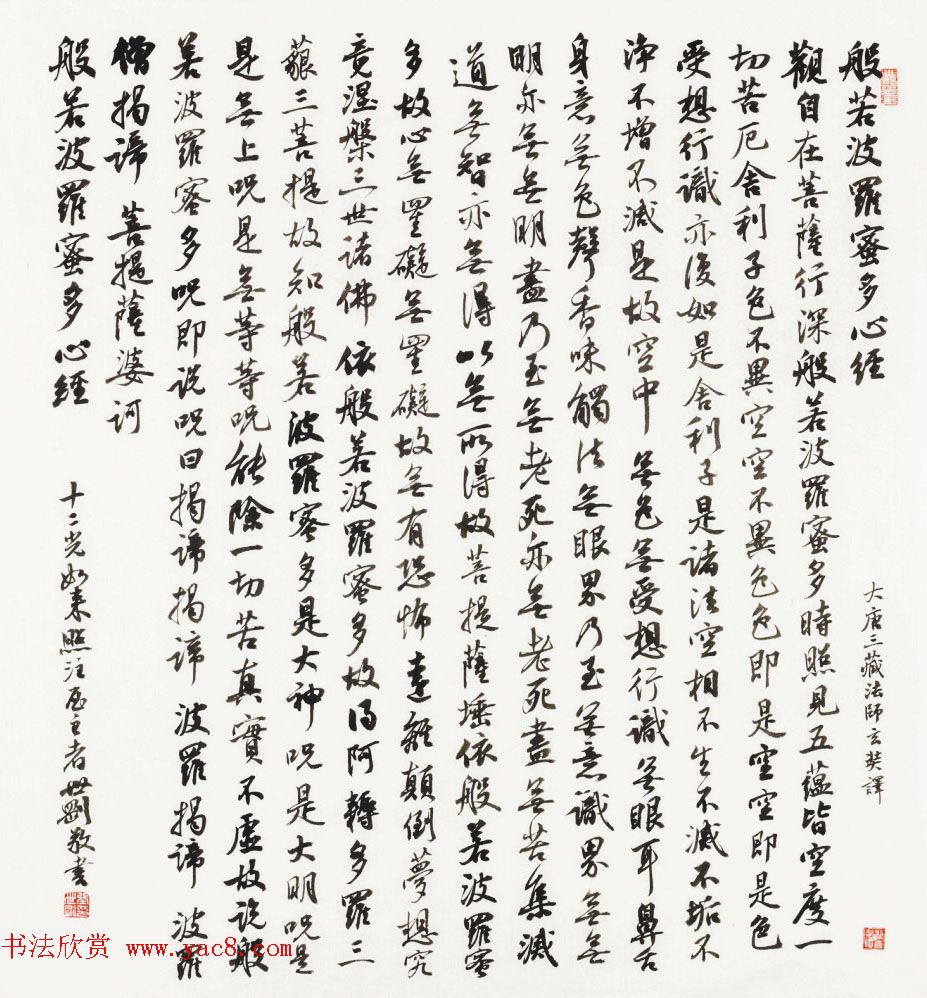 般若波羅蜜多心經
大唐三藏法師玄奘譯
觀自在菩薩行深般若波羅蜜多時照見五蘊皆空度一
切苦厄舍利子色不異空空不異色色即是空空即是色
受想行識亦復如是舍利子是諸法空相不生不滅不垢不
淨不增不減是故空中 無色無受想行識無眼耳鼻舌
身意無色聲香味觸法無眼界乃至無意識界無無
明亦無無明盡乃至無老死亦無老死盡無苦集滅
道無智亦無得以無所得故菩提薩埵依般若波羅蜜
多故心無罣礙無罣礙故無有恐怖 遠離顛倒夢想究
竟涅槃三世諸佛 依般若波羅蜜多故得阿耨多羅三
藐三菩提故知般若波羅蜜多是大神呪是大明呪是
是無上呪是無等等呪能除一切苦真實不虛故説般
若波羅蜜多呪即説呪曰揭諦揭諦 波羅揭諦 波羅
僧揭諦 菩提薩婆訶
般若波羅蜜多心經
十二光如來照注居主者世劉敬書
书法欣赏 www.yac8.com